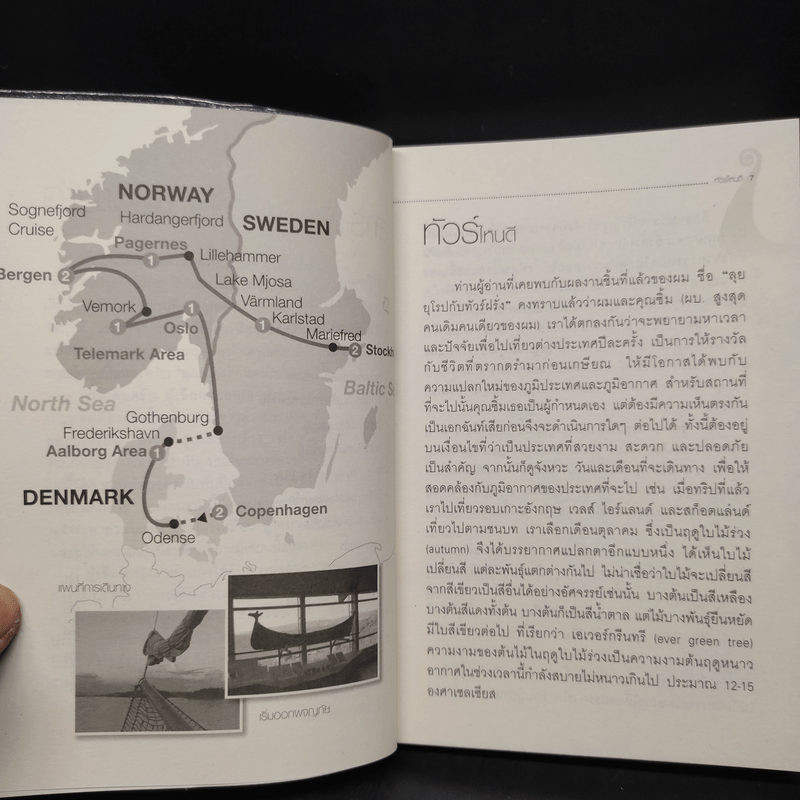 NORWAY
Sognefjord
Cruise
Hardangerfjord
SWEDEN
Pagernes
Lillehammer
1
Bergen 2
Lake Mjosa
Vemork
Värmland
1
1
Oslo
1
Karlstad
Mariefred
2 Stockh
Telemark Area
Baltic S
North Sea
Gothenburg
Frederikshavn
Aalborg Area 1
DENMARK
2 Copenhagen
Odense
แผนที่การเดินทาง
เริ่มออกผจญภัย
ทัวร์ไหนดี 7
ทัวร์ไหนดี
ท่านผู้อ่านที่เคยพบกับผลงานชิ้นที่แล้วของผม ชื่อ "ลุย
ยุโรปกับทัวร์ฝรั่ง" คงทราบแล้วว่าผมและคุณซิ้ม (ผบ. สูงสุด
คนเดิมคนเดียวของผม) เราได้ตกลงกันว่าจะพยายามหาเวลา
และปัจจัยเพื่อไปเที่ยวต่างประเทศปีละครั้ง เป็นการให้รางวัล
กับชีวิตที่ตรากตรำมาก่อนเกษียณ ให้มีโอกาสได้พบกับ
ความแปลกใหม่ของภูมิประเทศและภูมิอากาศ สำหรับสถานที่
ที่จะไปนั้นคุณซิ้มเธอเป็นผู้กำหนดเอง แต่ต้องมีความเห็นตรงกัน
เป็นเอกฉันท์เสียก่อนจึงจะดำเนินการใดๆ ต่อไปได้ ทั้งนี้ต้องอยู่
บนเงื่อนไขที่ว่าเป็นประเทศที่สวยงาม สะดวก และปลอดภัย
เป็นสำคัญ จากนั้นก็ดูจังหวะ วันและเดือนที่จะเดินทาง เพื่อให้
สอดคล้องกับภูมิอากาศของประเทศที่จะไป เช่น เมื่อทริปที่แล้ว
เราไปเที่ยวรอบเกาะอังกฤษ เวลส์ ไอร์แลนด์ และสก็อตแล่นด์
เที่ยวไปตามชนบท เราเลือกเดือนตุลาคม ซึ่งเป็นฤดูใบไม้ร่วง
(autumn) จึงได้บรรยากาศแปลกตาอีกแบบหนึ่ง ได้เห็นใบไม้
เปลี่ยนสี แต่ละพันธุ์แตกต่างกันไป ไม่น่าเชื่อว่าใบไม้จะเปลี่ยนสี
จากสีเขียวเป็นสีอื่นได้อย่างอัศจรรย์เช่นนั้น บางต้นเป็นสีเหลือง
บางต้นสีแดงทั้งต้น บางต้นก็เป็นสีน้ำตาล แต่ไม้บางพันธุ์ยืนหยัด
มีใบสีเขียวต่อไป ที่เรียกว่า เอเวอร์กรีนทรี (ever green tree)
ความงามของต้นไม้ในฤดูใบไม้ร่วงเป็นความงามต้นฤดูหนาว
อากาศในช่วงเวลานี้กำลังสบายไม่หนาวเกินไป ประมาณ 12-15
องศาเซลเซียส